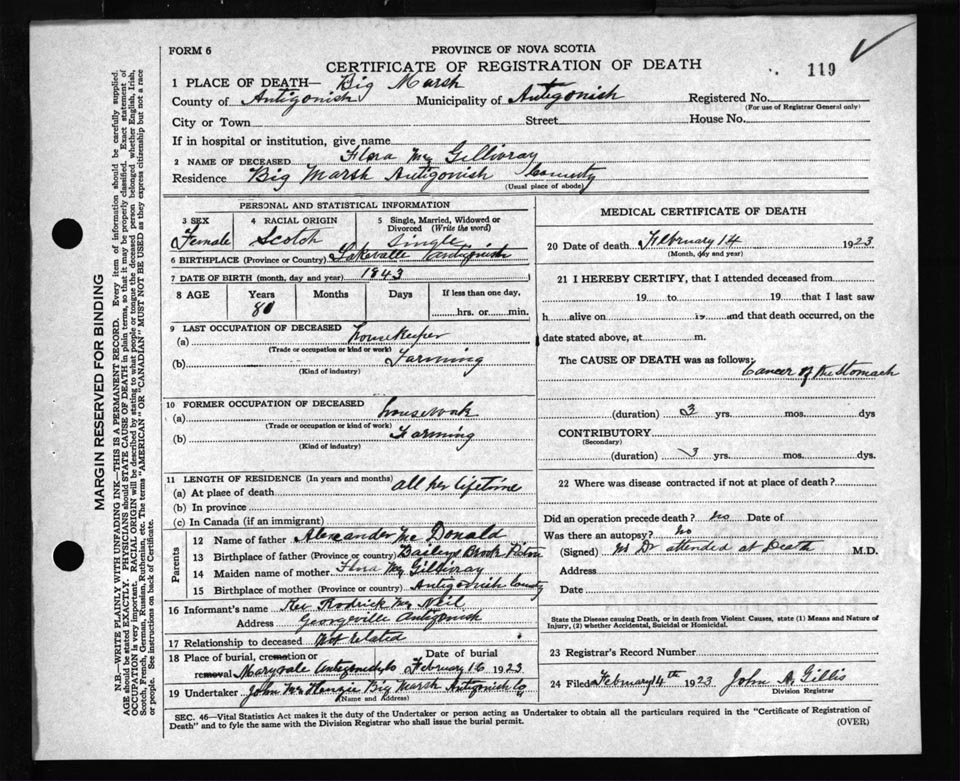 FORM 6
PROVINCE OF NOVA SCOTIA
CERTIFICATE OF REGISTRATION OF DEATH
119
1 PLACE OF DEATH— Big Marsh
County of Antigonish Municipality of Antigonish Registered No.
(For use of Registrar General only)
City or Town Street House No.
If in hospital or institution, give name
2 NAME OF DECEASED Flora Mc Gillivray
Residence Big Marsh Antigonish County
(Usual place of abode)
PERSONAL AND STATISTICAL INFORMATION
3 SEX 4 RACIAL ORIGIN 5 Single, Married, Widowed or Divorced (Write the word)
Female Scotch Single
6 BIRTHPLACE (Province or Country) Lakevale Antigonish
7 DATE OF BIRTH (month, day and year) 1843
8 AGE Years Months Days If less than one day,
80 hrs. or min.
9 LAST OCCUPATION OF DECEASED
(a) housekeeper
(Trade or occupation or kind or work)
(b) Farming
(Kind of industry)
10 FORMER OCCUPATION OF DECEASED
(a) housework
(Trade or occupation or kind of work)
(b) Farming
(Kind of industry)
11 LENGTH OF RESIDENCE (In years and months)
(a) At place of death all her lifetime
(b) In province
(c) In Canada (if an immigrant)
Parents
12 Name of father Alexander Mc Donald
13 Birthplace of father (Province or country) Baileys Brook Pictou
14 Maiden name of mother Flora Mc Gillivray
15 Birthplace of mother (Province or country) Antigonish County
16 Informant's name Rev Rodrick Mc Neil
Address Georgeville Antigonish
17 Relationship to deceased Not related
18 Place of burial, cremation or removal Date of burial
Maryvale Antigonish Co February 16 1923
19 Undertaker John Mc Kenzie Big Marsh Antigonish Co
(Name and Address)
MEDICAL CERTIFICATE OF DEATH
20 Date of death February 14 1923
(Month, day and year)
21 I HEREBY CERTIFY, that I attended deceased from
19 to 19 that I last saw
h alive on 19 and that death occurred, on
date stated above, at m.
The CAUSE OF DEATH was as follows:
Cancer of the Stomach
(duration) 3 yrs. mos. dys
CONTRIBUTORY
(Secondary)
(duration) 3 yrs. mos. dys.
22 Where was disease contracted if not at place of death?
Did an operation precede death? no Date of
Was there an autopsy? no
(Signed) No Dr attended at Death M.D.
Address
Date
State the Disease causing Death, or in death from Violent Causes, state (1) Means and Nature of
Injury, (2) whether Accidental, Suicidal or Homicidal.
23 Registrar's Record Number
24 Filed February 14th 1923 John A Gillis
Division Registrar
SEC. 46—Vital Statistics Act makes it the duty of the Undertaker or person acting as Undertaker to obtain all the particulars required in the "Certificate of Registration of
Death" and to fyle the same with the Division Registrar who shall issue the burial permit.
(OVER)
MARGIN RESERVED FOR BINDING
N.B.—WRITE PLAINLY WITH UNFADING INK—THIS IS A PERMANENT RECORD. Every item of information should be carefully supplied.
AGE should be stated EXACTLY. PHYSICIANS should STATE CAUSE OF DEATH in plain terms, so that it may be properly classified. Exact statement of
OCCUPATION is very important. RACIAL ORIGIN will be described by stating to what people or tongue the deceased person belonged whether English, Irish,
Scotch, French, German, Russian, Ruthenian, etc. The terms "AMERICAN" OR "CANADIAN" MUST NOT BE USED as they express citizenship but not a race
or people. See instructions on back of Certificate.